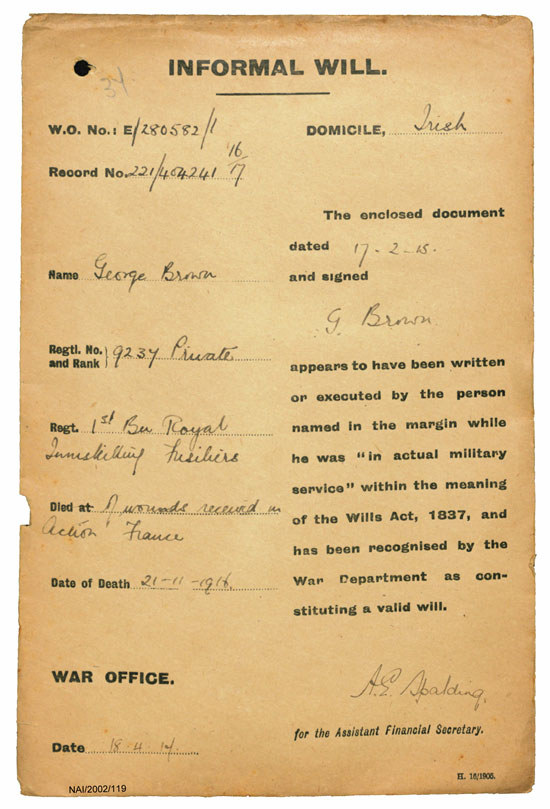 34
INFORMAL WILL.
W.O. No.: E/280582/1
Record No. 221/404241 16/17
Name George Brown
Regtl. No. and Rank } 9237 Private
Regt. 1st Bn Royal
Inniskilling Fusiliers
Died at of wounds received in
Action France
Date of Death 21-11-1916
WAR OFFICE.
Date 18.4.17.
NAI/2002/119
DOMICILE, Irish
The enclosed document
dated 17-2-15.
and signed
G. Brown
appears to have been written
or executed by the person
named in the margin while
he was "in actual military
service" within the meaning
of the Wills Act, 1837, and
has been recognised by the
War Department as con-
stituting a valid will.
A.E. Spalding.
for the Assistant Financial Secretary.
H. 16/1905.